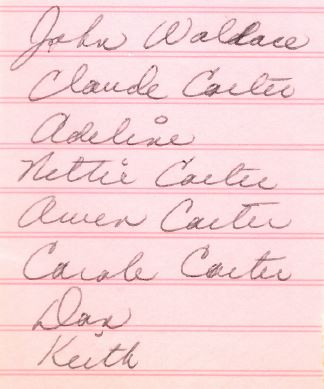 John Wallace
Claude Carter
Adeline
Nettie Carter
Owen Carter
Carole Carter
Dan
Keith